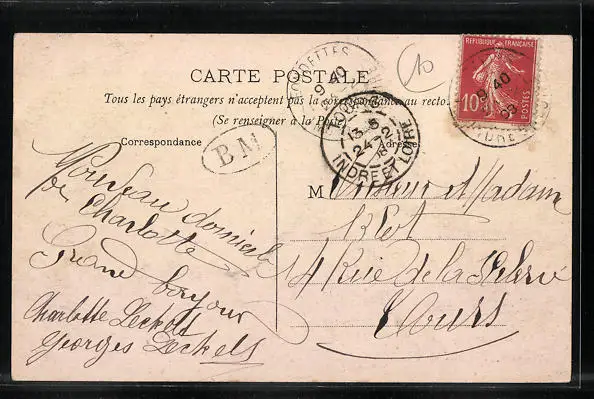 CARTE POSTALE
Tous les pays étrangers n'acceptent pas la correspondance au recto
(Se renseigner à la Poste)
Correspondance
Adresse
REPUBLIQUE FRANÇAISE
10c
9 40
08
9 40
TOURS
13 5
24-12
INDRE ET LOIRE
BM
Nouveau domicile
de Charlotte
Grand bonjour
Charlotte Leckels
Georges Leckels
M Monsieur et Madam
Klet
4 Rue de la
Tours
10